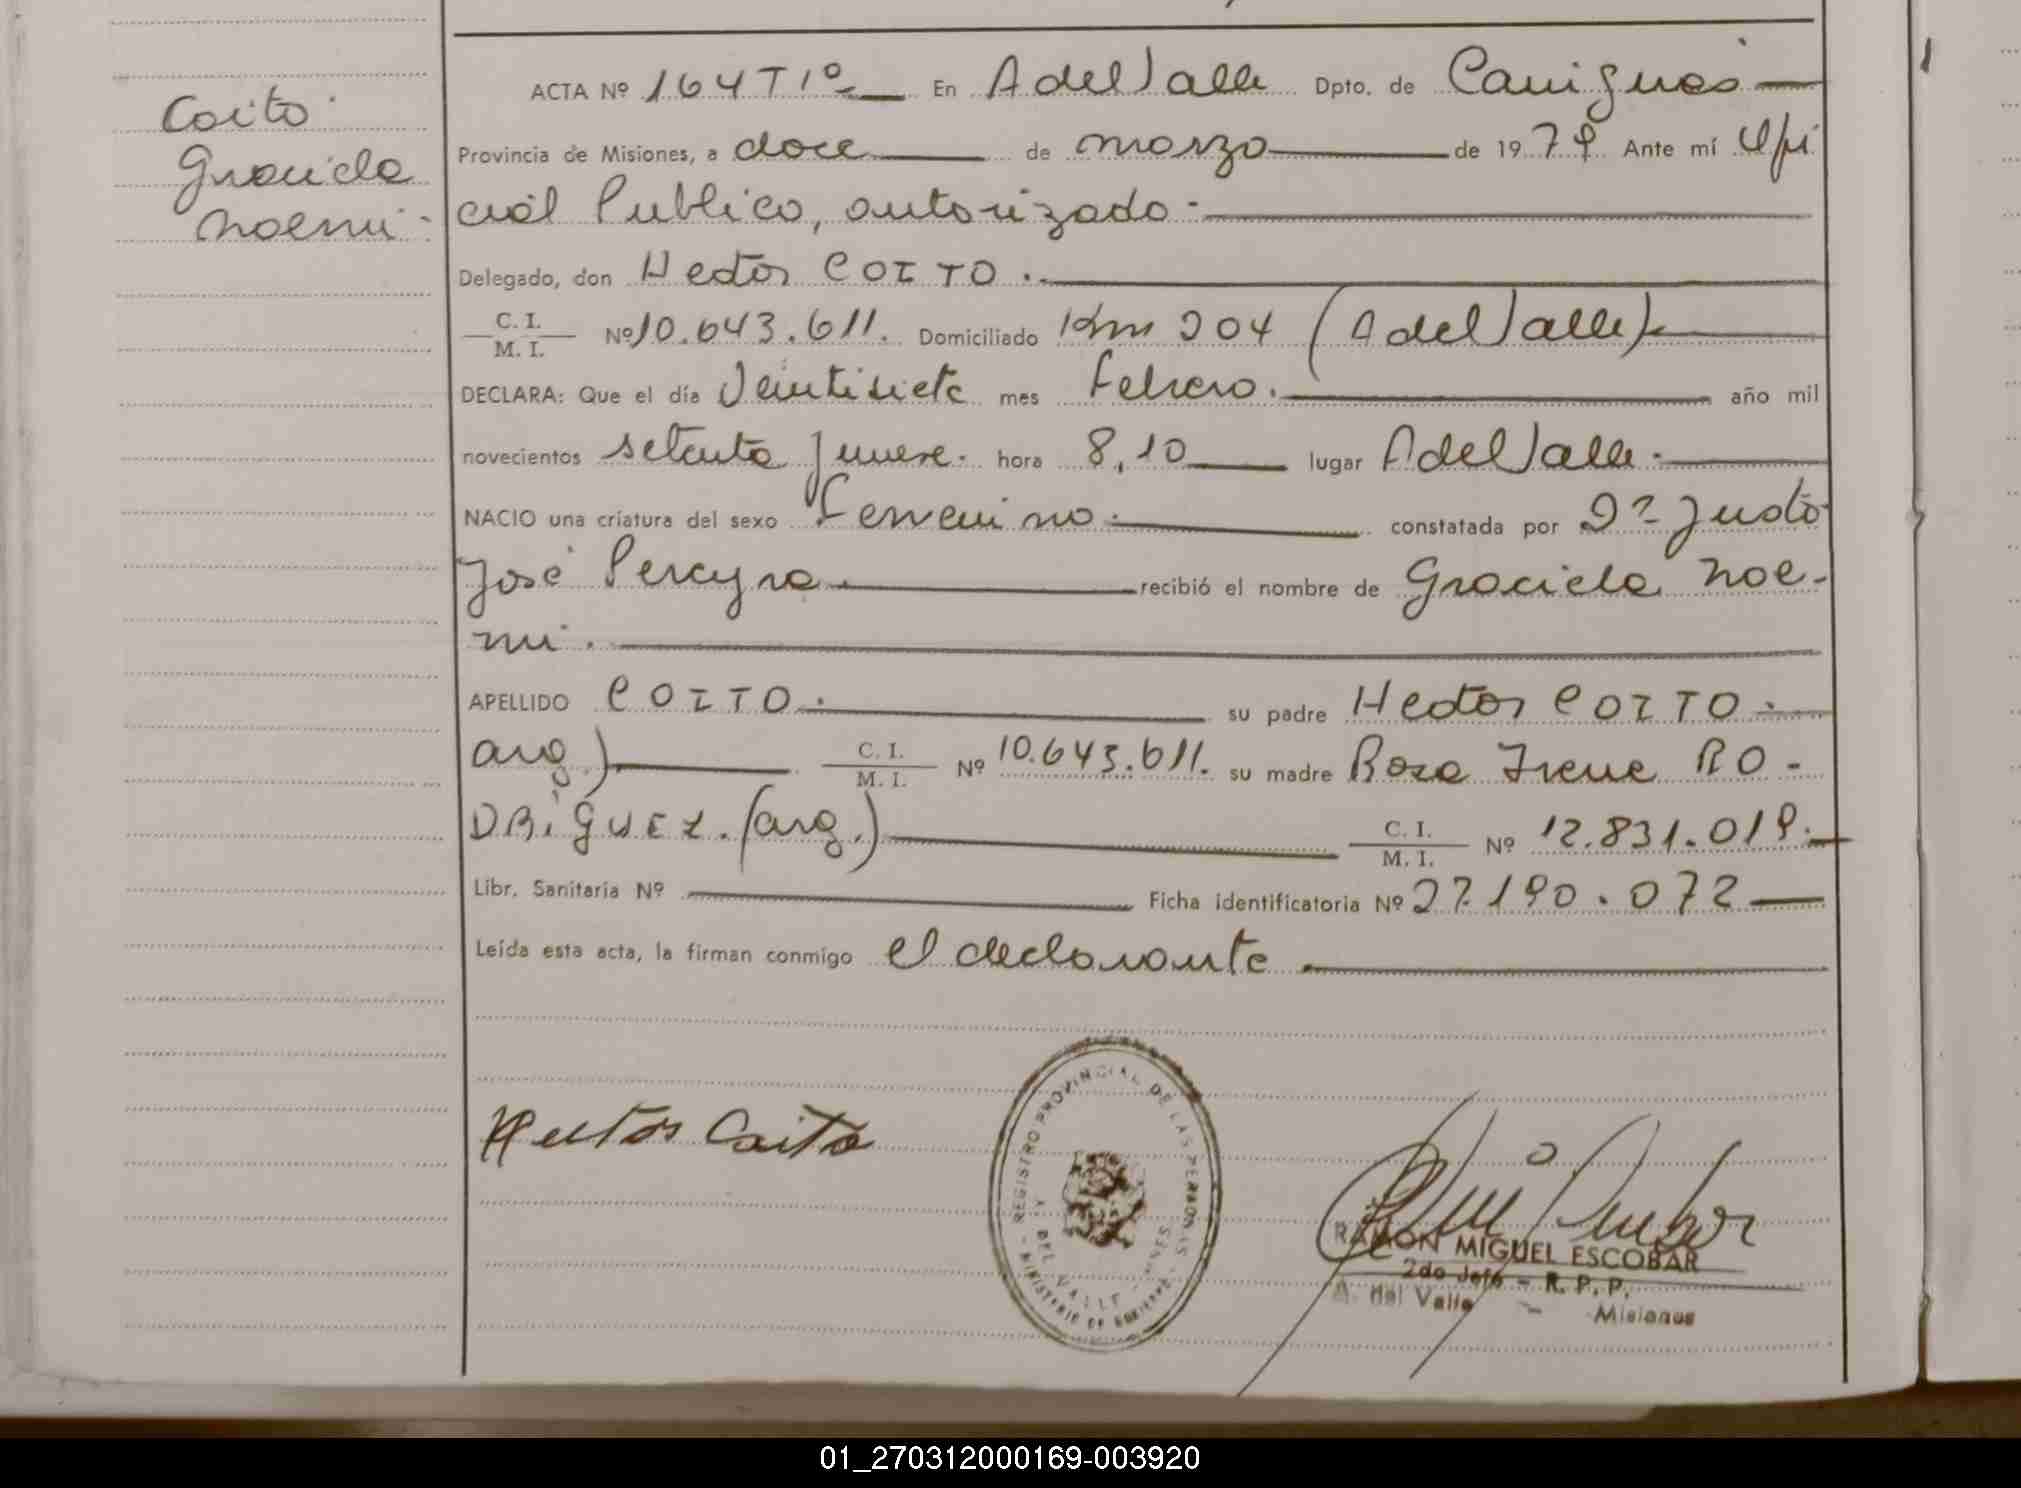 Coito
Graciela
Noemi.
ACTA Nº 164 Tº 1º En A del Valle Dpto. de Cainguas
Provincia de Misiones, a doce de marzo de 1979 Ante mí Ofi
cial Publico, autorizado.
Delegado, don Hector COITO.
C. I.
M. I. Nº 10.643.611. Domiciliado Km 204 (A del Valle)
DECLARA: Que el día Veintisiete mes Febrero. año mil
novecientos setenta y nueve. hora 8,10 lugar A del Valle.
NACIO una criatura del sexo Femenino. constatada por Dr. Justo
José Pereyra recibió el nombre de Graciela Noe-
mi.
APELLIDO COITO. su padre Hector COITO.
arg.) C. I.
M. I. Nº 10.643.611. su madre Rosa Irene RO-
DRIGUEZ. (arg.) C. I.
M. I. Nº 12.831.019.
Libr. Sanitaria Nº Ficha identificatoria Nº 27.190.072
Leída esta acta, la firman conmigo el declarante
Hector Coito
REGISTRO PROVINCIAL DE LAS PERSONAS
MINISTERIO DE GOBIERNO
DEL VALLE
RAMON MIGUEL ESCOBAR
2do Jefe - R. P. P.
A. del Valle - Misiones
01_270312000169-003920